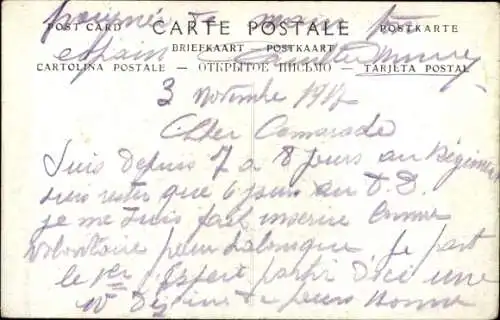 poignée de main ton
POST CARD CARTE POSTALE POSTKARTE
BRIEFKAART POSTKAART
copain
CARTOLINA POSTALE — ОТКРЫТОЕ ПИСЬМО — TARJETA POSTAL
3 novembre 1917
Cher Camarade
Suis depuis 7 a 8 jours au Régiment
suis rester que 6 jours au D.D.
je me suis fait inscrire comme
volontaire pour Salonique je part
le 1er partir d'ici une
de jours